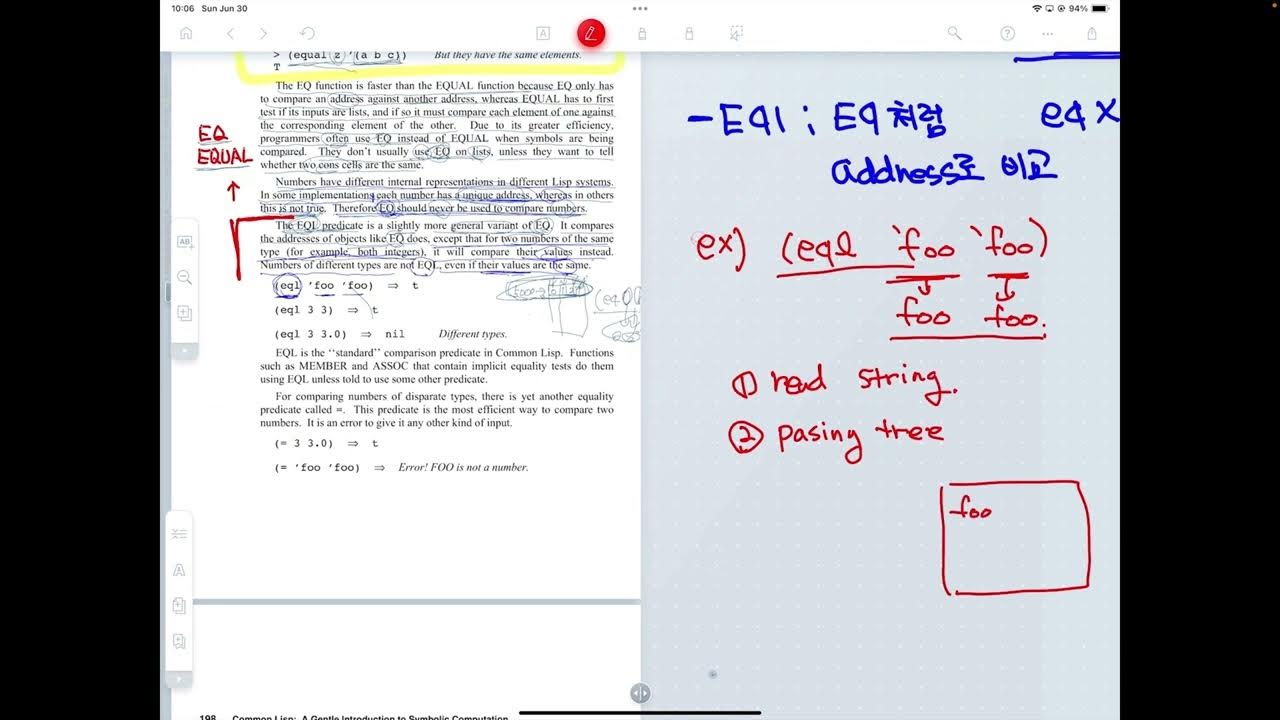 10:06 Sun Jun 30
94%
> (equal z '(a b c)) But they have the same elements.
T
The EQ function is faster than the EQUAL function because EQ only has
to compare an address against another address, whereas EQUAL has to first
test if its inputs are lists, and if so it must compare each element of one against
the corresponding element of the other. Due to its greater efficiency,
programmers often use EQ instead of EQUAL when symbols are being
compared. They don't usually use EQ on lists, unless they want to tell
whether two cons cells are the same.
EQ
EQUAL
Numbers have different internal representations in different Lisp systems.
In some implementations each number has a unique address, whereas in others
this is not true. Therefore EQ should never be used to compare numbers.
The EQL predicate is a slightly more general variant of EQ. It compares
the addresses of objects like EQ does, except that for two numbers of the same
type (for example, both integers), it will compare their values instead.
Numbers of different types are not EQL, even if their values are the same.
(eql 'foo 'foo) ⇒ t
(eql 3 3) ⇒ t
(eql 3 3.0) ⇒ nil Different types.
EQL is the ''standard'' comparison predicate in Common Lisp. Functions
such as MEMBER and ASSOC that contain implicit equality tests do them
using EQL unless told to use some other predicate.
For comparing numbers of disparate types, there is yet another equality
predicate called =. This predicate is the most efficient way to compare two
numbers. It is an error to give it any other kind of input.
(= 3 3.0) ⇒ t
(= 'foo 'foo) ⇒ Error! FOO is not a number.
198 Common Lisp: A Gentle Introduction to Symbolic Computation
- EQl ; EQ처럼 eq x
address로 비교
ex) (eql 'foo 'foo)
foo foo.
① read string.
② pasing tree
foo